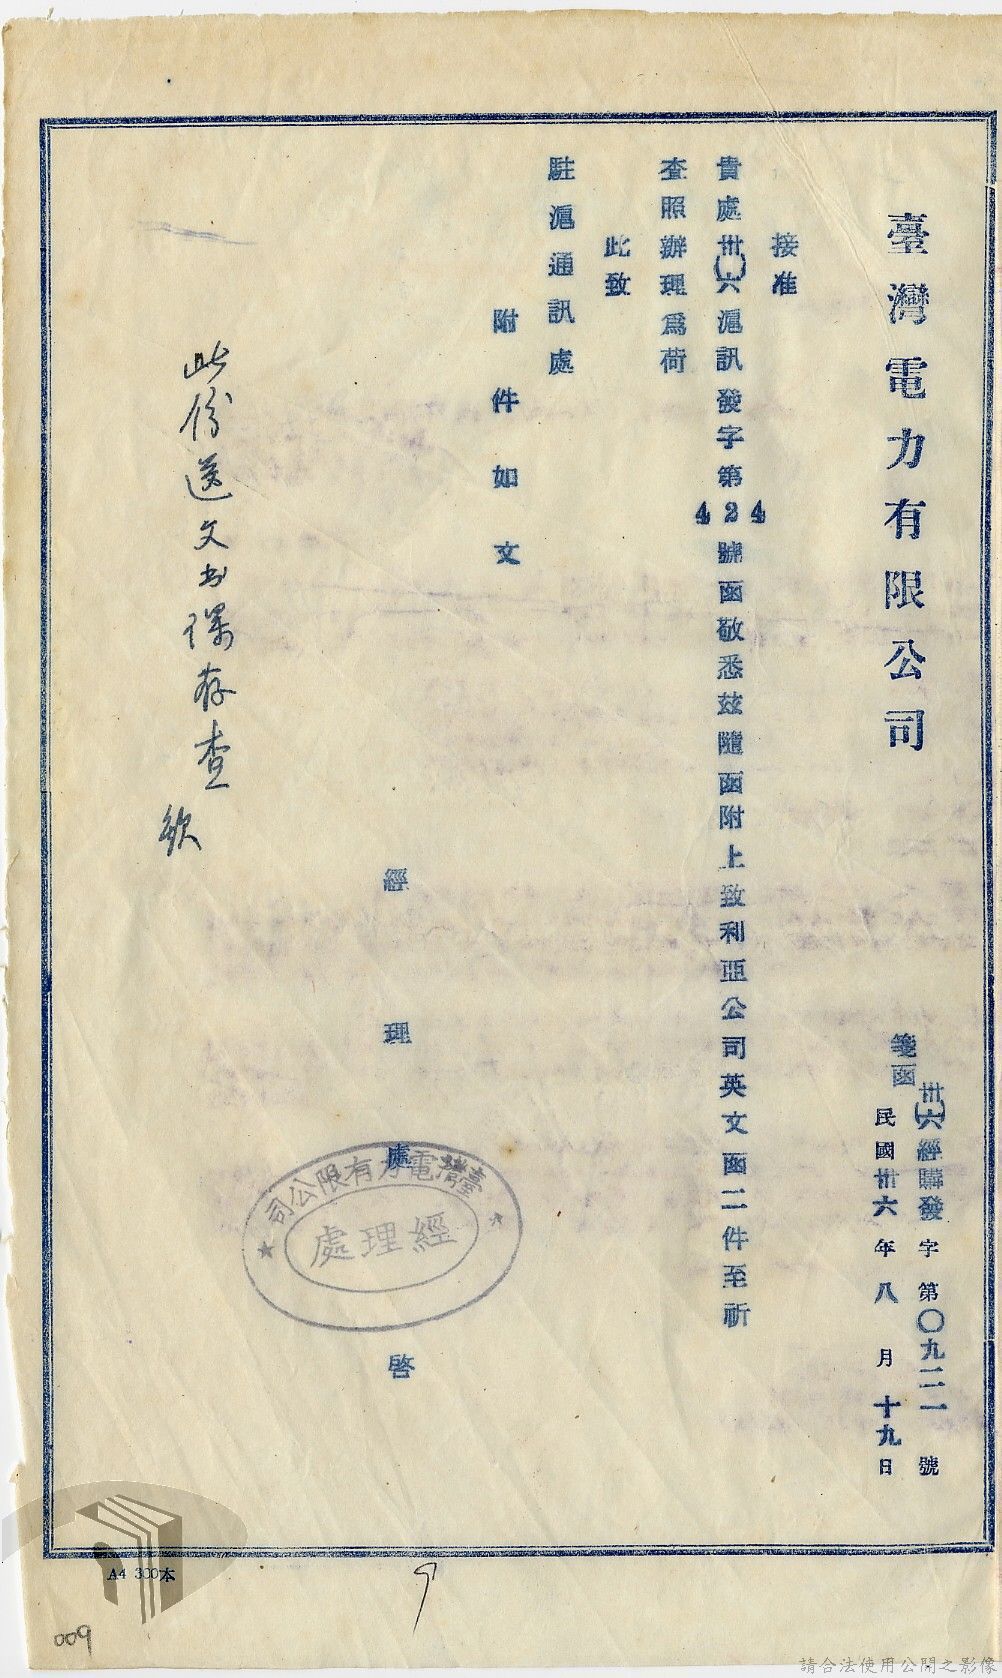 臺灣電力有限公司
箋函
卅(六)經購發字第〇九二一號
民國卅六年八月十九日
接准
貴處卅(六)滬訊發字第424號函敬悉茲隨函附上致利亞公司英文函二件至祈
查照辦理爲荷
此致
駐滬通訊處
附件如文
經理處啓
臺灣電力有限公司
經理處
此份送文书課存查
欽
A4 300本
009
請合法使用公開之影像